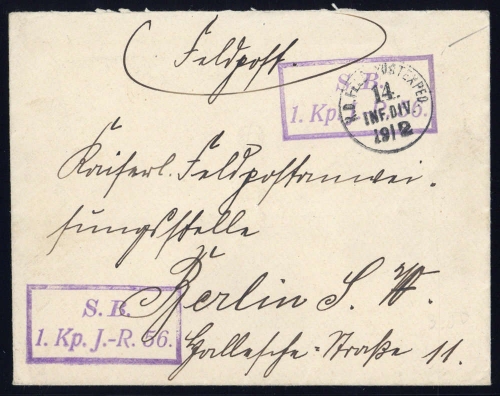 Feldpost.
S. B.
1. Kp. 56.
14.
INF. DIV.
1912
Kaiserl. Feldpostanwei-
sungsstelle
Berlin S. W.
Hallesche-Straße 11.
S. B.
1. Kp. J.-R. 56.